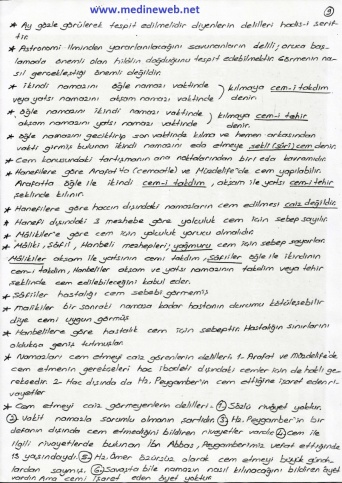 www.medineweb.net
9
* Ay gözle görülerek tespit edilmelidir diyenlerin delilleri hadis-i şerif-
tir.
* Astronomi ilminden yararlanılacağını savunanların delili; oruca baş-
lamada önemli olan hilâlin doğduğunu tespit edebilmektir. Görmenin na-
sıl gerçekleştiği önemli değildir.
* ikindi namazını öğle namazı vaktinde } kılmaya cem-i takdim
veya yatsı namazını akşam namazı vaktinde } denir.
* öğle namazını ikindi namazı vaktinde } kılmaya cem-i tehir
akşam namazını yatsı namazı vaktinde } denir.
* öğle namazını geciktirip son vaktinde kılma ve hemen arkasından
vakti girmiş bulunan ikindi namazını eda etmeye şeklî (sûrî) cem denir.
* Cem konusundaki tartışmanın ana noktalarından biri eda kavramıdır.
* Hanefilere göre Arafat'ta (cemaatle) ve Müzdelife'de cem yapılabilir.
Arafatta öğle ile ikindi cem-i takdim, akşam ile yatsı cem-i tehir
şeklinde kılınır.
* Hanefilere göre haccın dışındaki namazların cem edilmesi caiz değildir
* Hanefi dışındaki 3 mezhebe göre yolculuk cem için sebep sayılır.
* Mâlikiler'e göre cem için yolculuk yorucu olmalıdır.
* Mâliki, Şâfiî, Hanbeli mezhepleri; yağmuru cem için sebep sayarlar.
Mâlikiler akşam ile yatsının cemi takdim, Şâfiiler öğle ile ikindinin
cem-i takdim, Hanbeliler akşam ve yatsı namazının takdim veya tehir
şeklinde cem edilebileceğini kabul eder.
* Şâfiiler hastalığı cem sebebi görmemiş
* malikiler bir sonraki namaza kadar hastanın durumu kötüleşebilir
diye cemi uygun görmüş
* Hanbelilere göre hastalık cem için sebeptir. Hastalığın sınırlarını
oldukça geniş tutmuşlar.
* Namazları cem etmeyi caiz görenlerin delilleri: 1- Arafat ve Müzdelife'de
cem etmenin gerekçeleri hac ibadeti dışındaki cemler için de haklı ge-
rekçedir. 2- Hac dışında da Hz. Peygamber'in cem ettiğine işaret eden ri-
vayetler
* Cem etmeyi caiz görmeyenlerin delilleri: 1. Sözlü rivâyet yoktur.
2. Vakit namazla sorumlu olmanın şartıdır. 3. Hz. Peygamber'in bir
defanın dışında cem etmediğini bildiren rivayetler vardır. 4. Cem ile
ilgili rivayetlerde bulunan İbn Abbas, Peygamberimiz vefat ettiğinde
13 yaşındaydı. 5. Hz. Ömer özürsüz olarak cem etmeyi büyük günah-
lardan saymış. 6. Savaşta bile namazın nasıl kılınacağını bildiren âyet
vardır. Ama cemi işaret eden âyet yoktur.